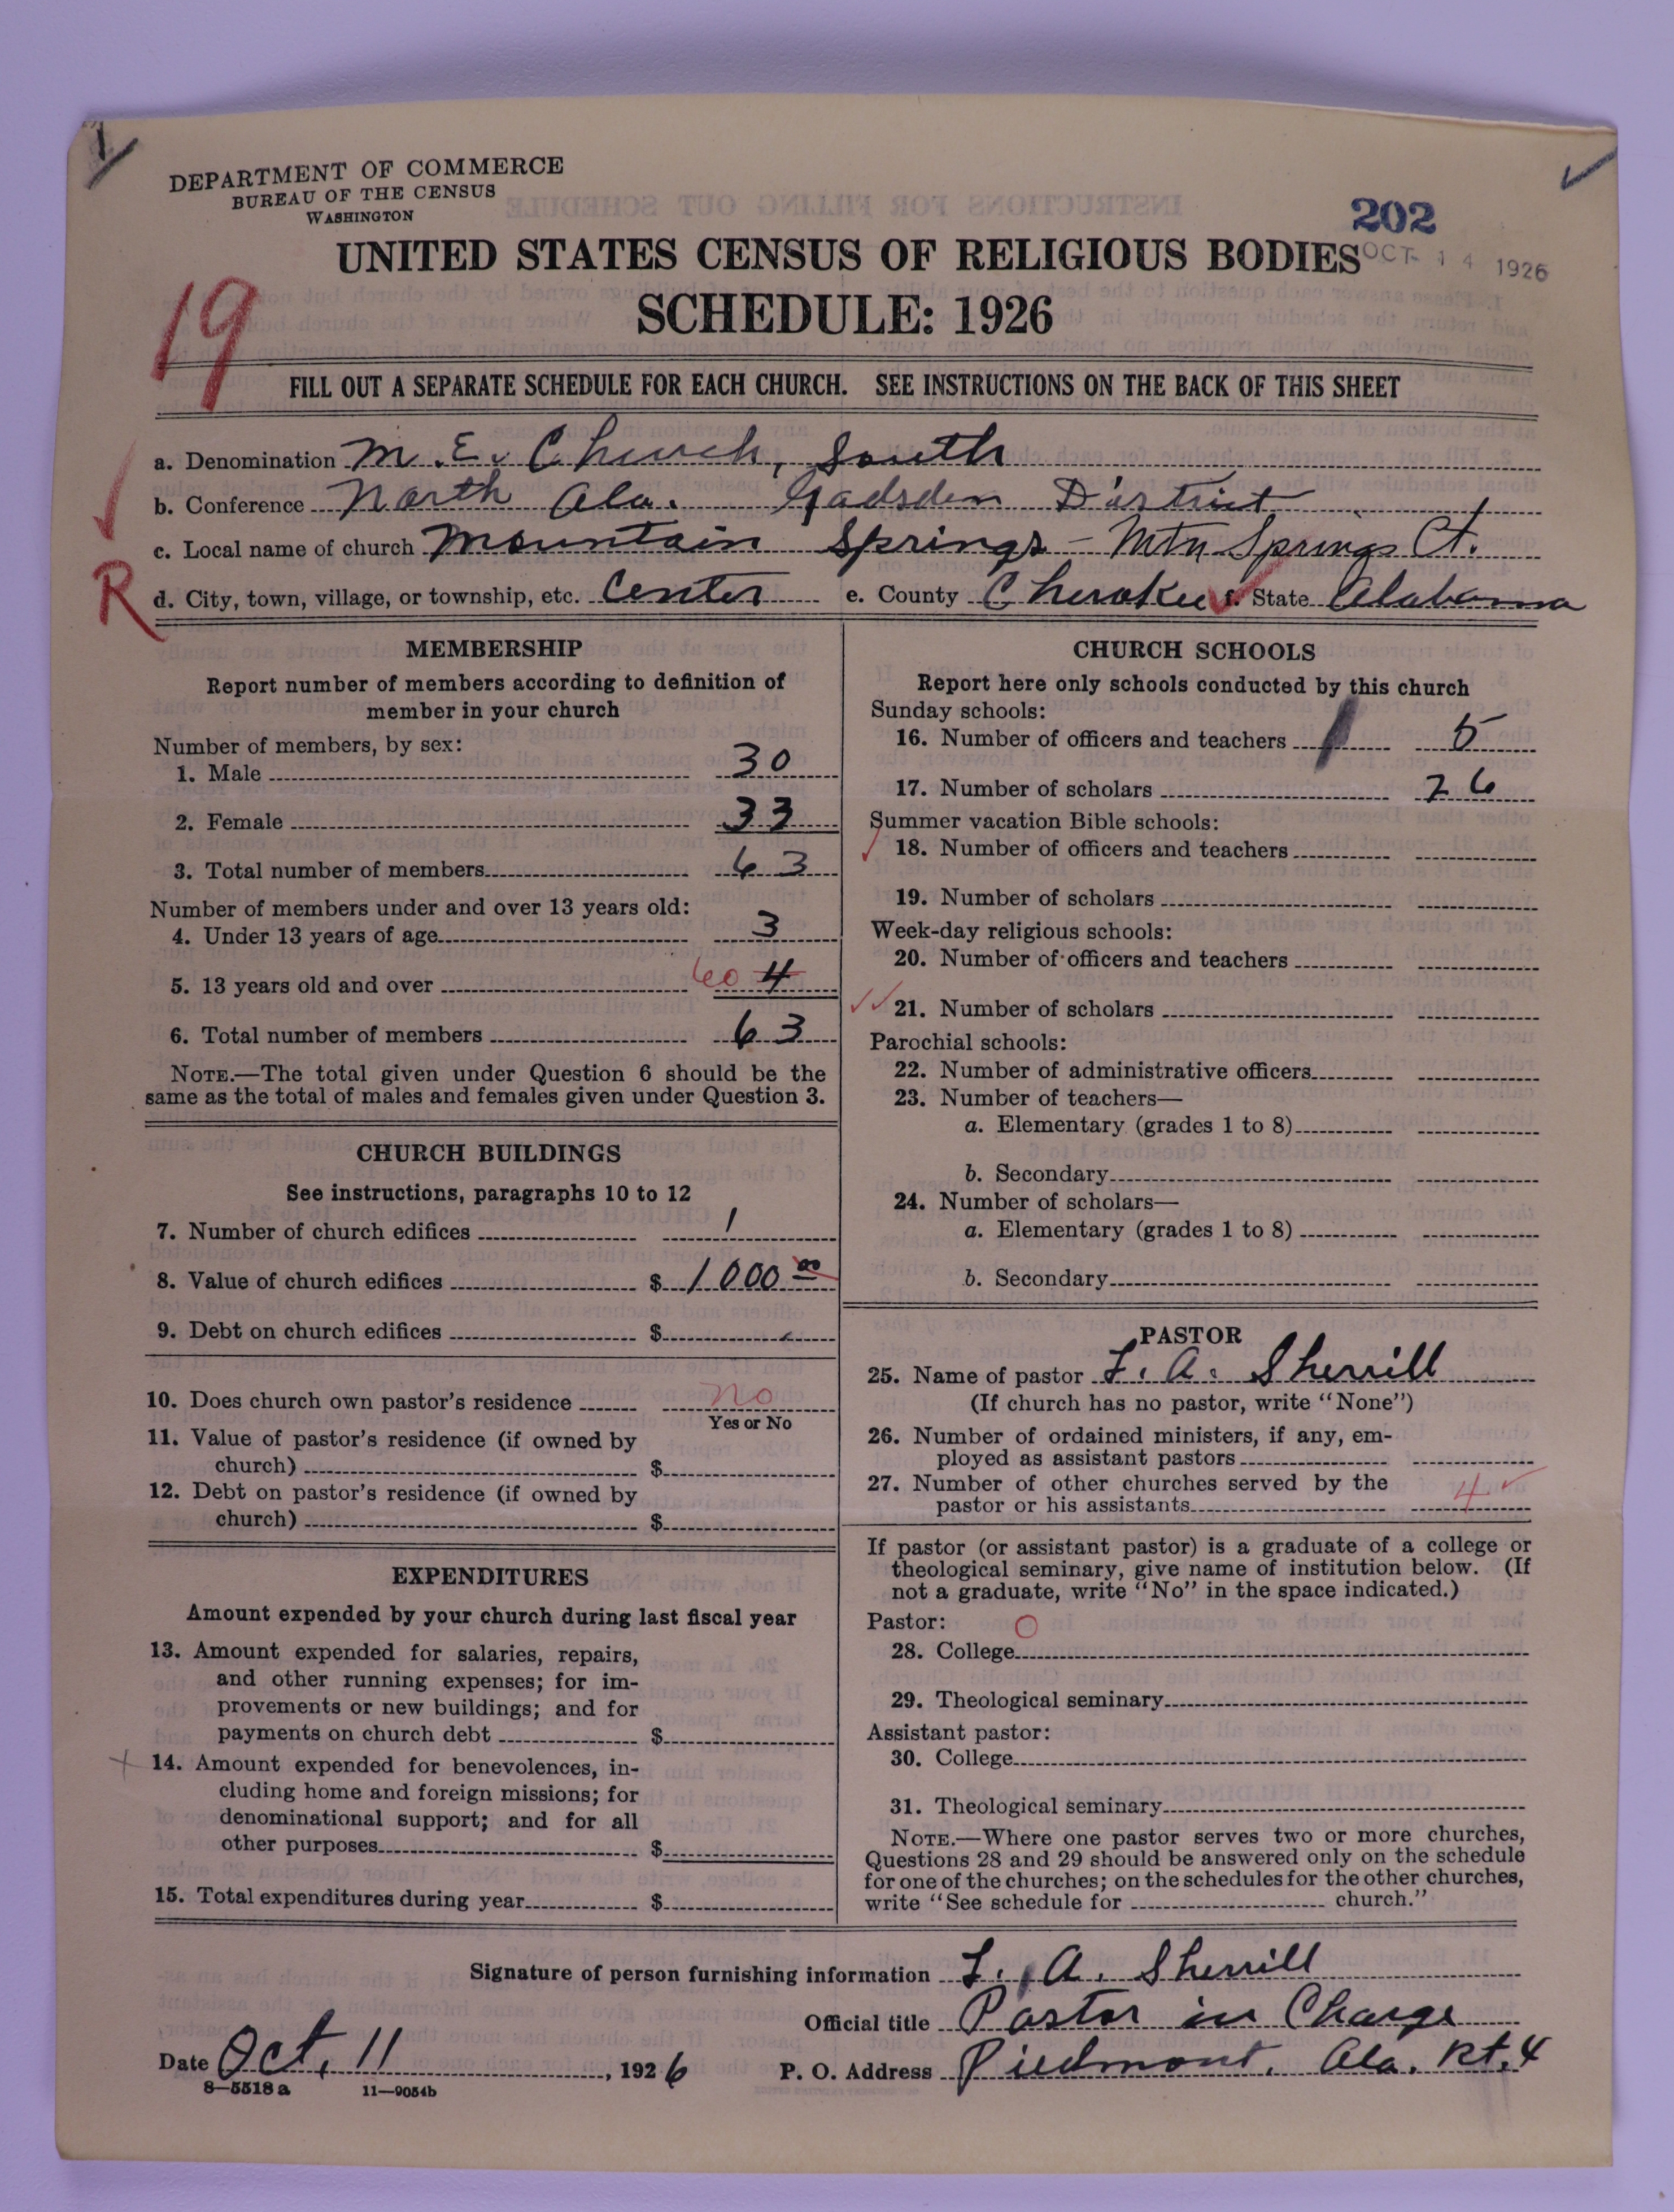 DEPARTMENT OF COMMERCE
BUREAU OF THE CENSUS
WASHINGTON
202
UNITED STATES CENSUS OF RELIGIOUS BODIES
OCT 14 1926
SCHEDULE: 1926
19
FILL OUT A SEPARATE SCHEDULE FOR EACH CHURCH. SEE INSTRUCTIONS ON THE BACK OF THIS SHEET
a. Denomination M. E. Church, South
b. Conference North Ala. Gadsden District
c. Local name of church Mountain Springs - Mtn Springs Ct.
R
d. City, town, village, or township, etc. Center e. County Cherokee f. State Alabama
MEMBERSHIP
Report number of members according to definition of
member in your church
Number of members, by sex:
1. Male 30
2. Female 33
3. Total number of members 63
Number of members under and over 13 years old:
4. Under 13 years of age 3
5. 13 years old and over 60 4
6. Total number of members 63
NOTE.—The total given under Question 6 should be the
same as the total of males and females given under Question 3.
CHURCH BUILDINGS
See instructions, paragraphs 10 to 12
7. Number of church edifices 1
8. Value of church edifices $ 1000 00
9. Debt on church edifices $
10. Does church own pastor's residence No
Yes or No
11. Value of pastor's residence (if owned by
church) $
12. Debt on pastor's residence (if owned by
church) $
EXPENDITURES
Amount expended by your church during last fiscal year
13. Amount expended for salaries, repairs,
and other running expenses; for im-
provements or new buildings; and for
payments on church debt $
14. Amount expended for benevolences, in-
cluding home and foreign missions; for
denominational support; and for all
other purposes $
15. Total expenditures during year $
CHURCH SCHOOLS
Report here only schools conducted by this church
Sunday schools:
16. Number of officers and teachers 5
17. Number of scholars 26
Summer vacation Bible schools:
18. Number of officers and teachers
19. Number of scholars
Week-day religious schools:
20. Number of officers and teachers
21. Number of scholars
Parochial schools:
22. Number of administrative officers
23. Number of teachers—
a. Elementary (grades 1 to 8)
b. Secondary
24. Number of scholars—
a. Elementary (grades 1 to 8)
b. Secondary
PASTOR
25. Name of pastor L. A. Sherrill
(If church has no pastor, write "None")
26. Number of ordained ministers, if any, em-
ployed as assistant pastors
27. Number of other churches served by the
pastor or his assistants 4
If pastor (or assistant pastor) is a graduate of a college or
theological seminary, give name of institution below. (If
not a graduate, write "No" in the space indicated.)
Pastor:
28. College
29. Theological seminary
Assistant pastor:
30. College
31. Theological seminary
NOTE.—Where one pastor serves two or more churches,
Questions 28 and 29 should be answered only on the schedule
for one of the churches; on the schedules for the other churches,
write "See schedule for church."
Signature of person furnishing information L. A. Sherrill
Official title Pastor in Charge
Date Oct. 11, 1926 P. O. Address Piedmont, Ala. Rt. 4
8—5518a 11—9054b